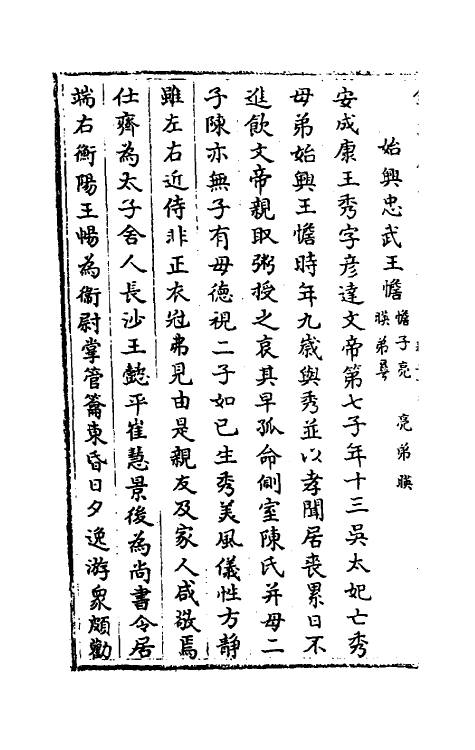 始興忠武王憺 憺子亮 亮弟暎 暎弟曅
安成康王秀字彦達文帝第七子年十三吳太妃亡秀
母弟始興王憺時年九歲與秀並以孝聞居喪累日不
進飲文帝親取粥授之哀其早孤命側室陳氏并母二
子陳亦無子有母德視二子如已生秀美風儀性方静
雖左右近侍非正衣冠弗見由是親友及家人咸敬焉
仕齊為太子舍人長沙王懿平崔慧景後為尚書令居
端右衡陽王暢為衞尉掌管籥東昏日夕逸游衆頗勸